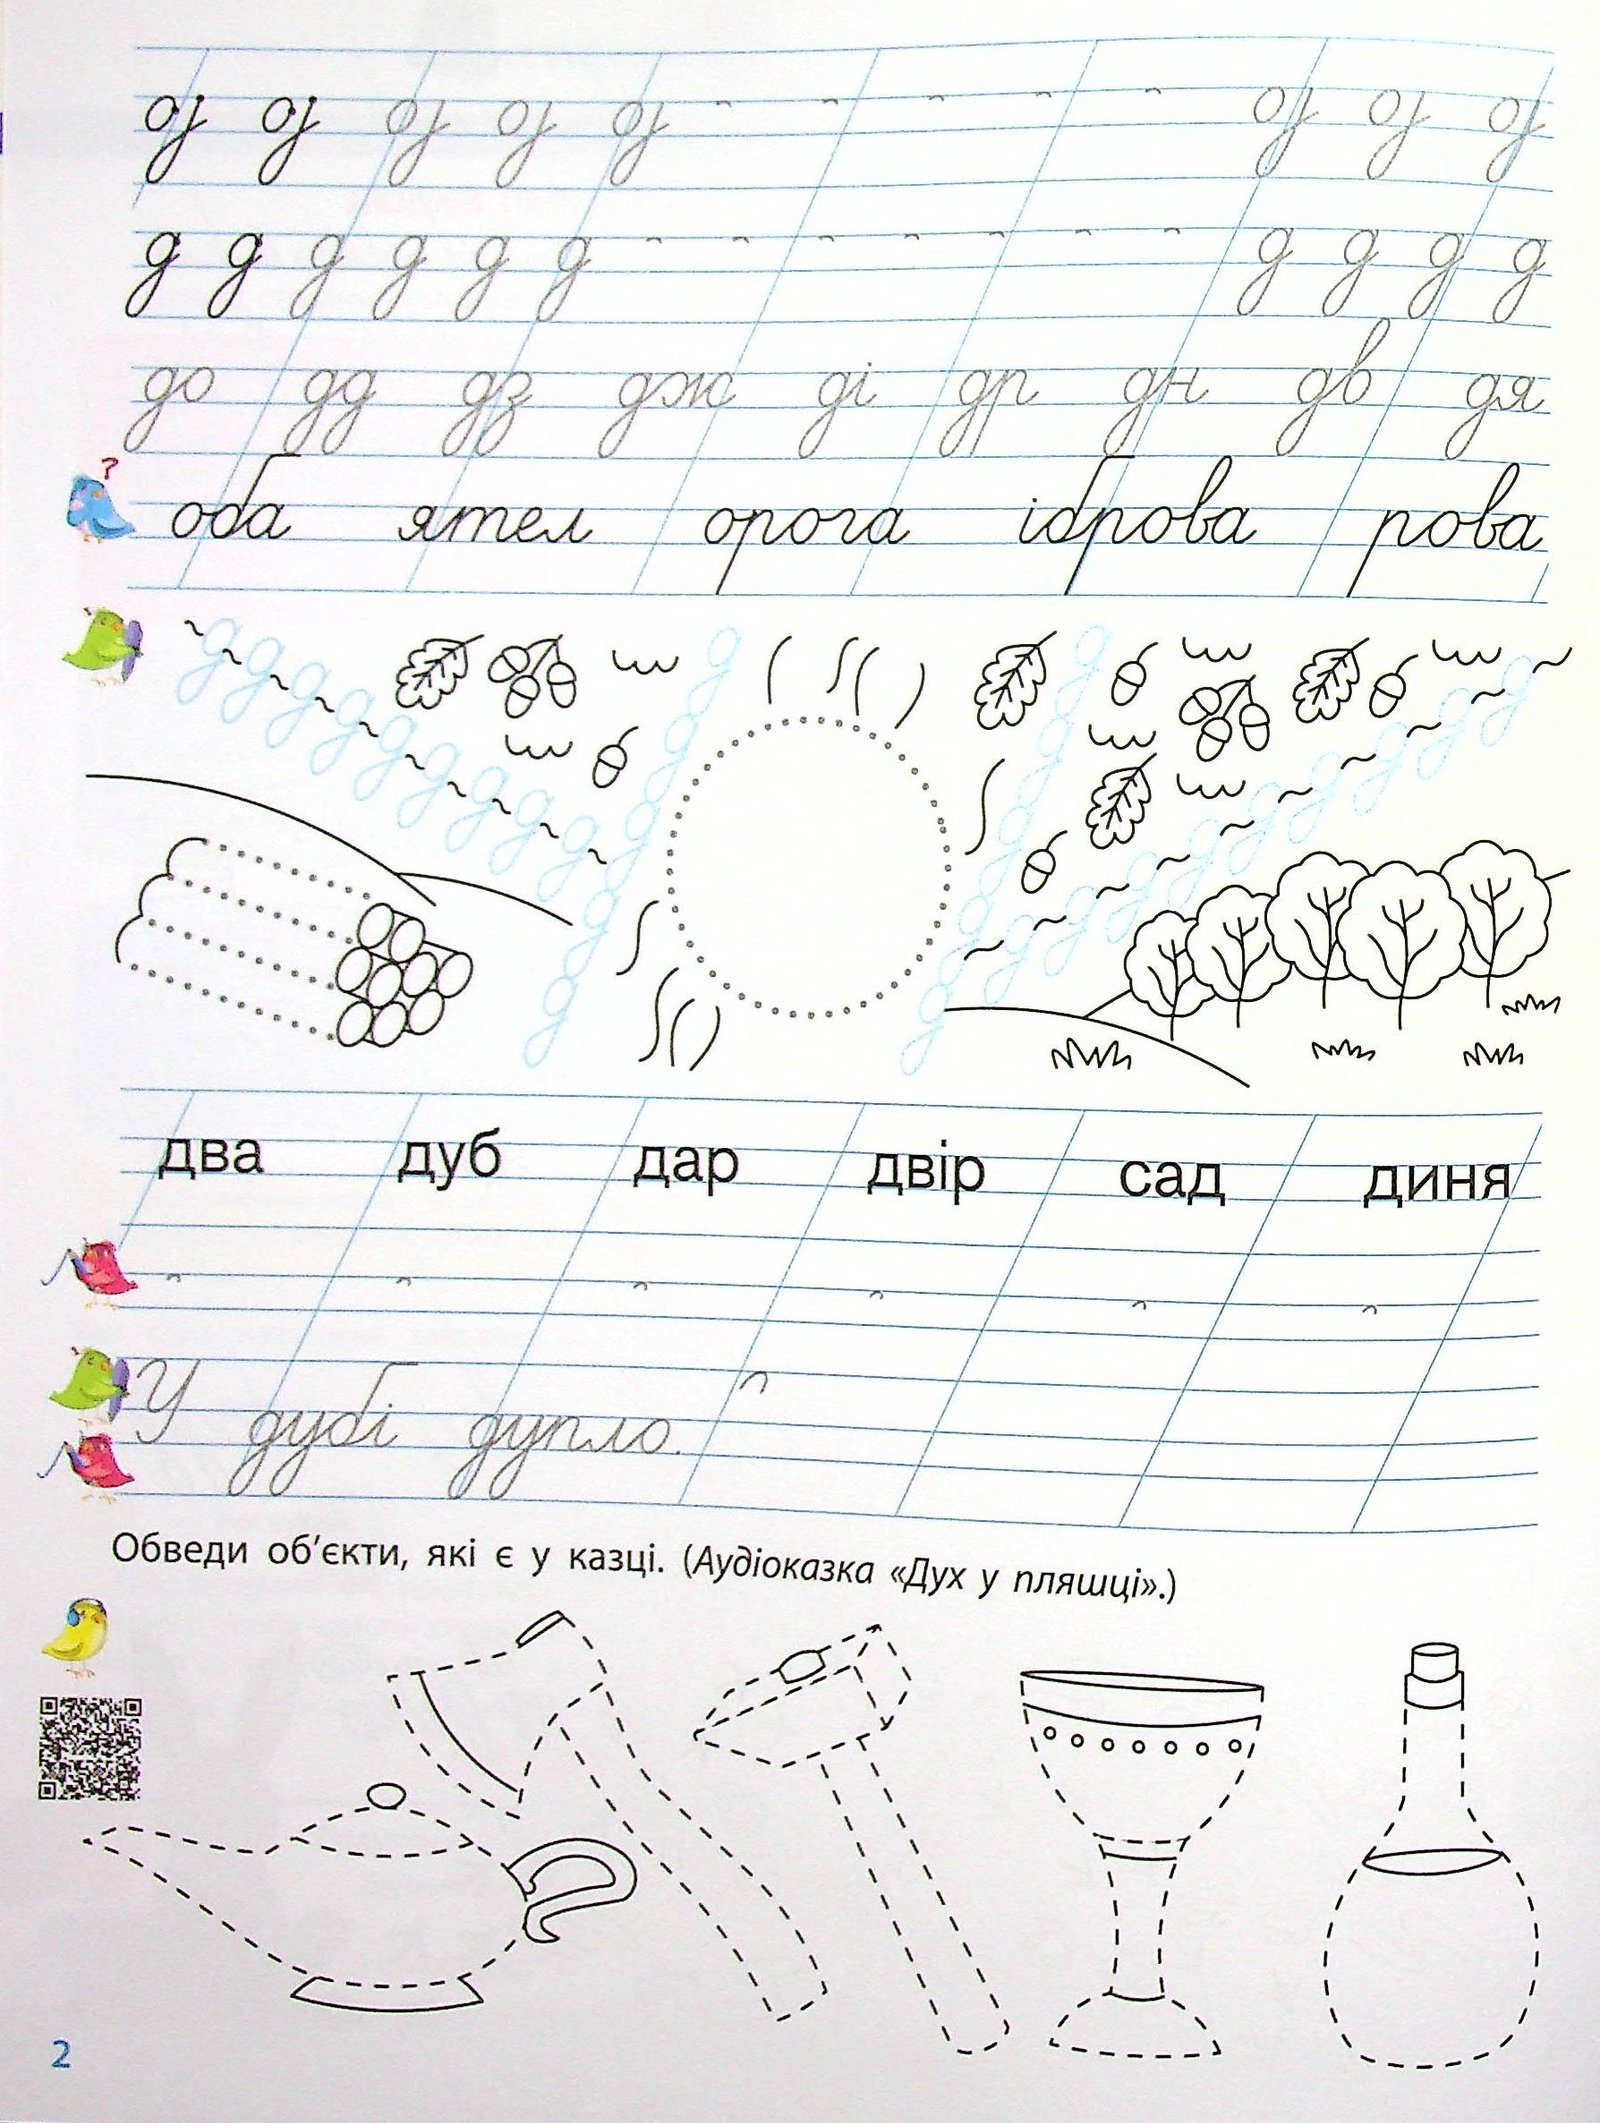 д д д д д д д д
д д д д д д д д д д
до дд дз дж ді др дн дв дя
?
оба ятел орога іброва рова
д д д д д д д д д
два дуб дар двір сад диня
У дубі дупло.
Обведи об'єкти, які є у казці. (Аудіоказка «Дух у пляшці».)
2